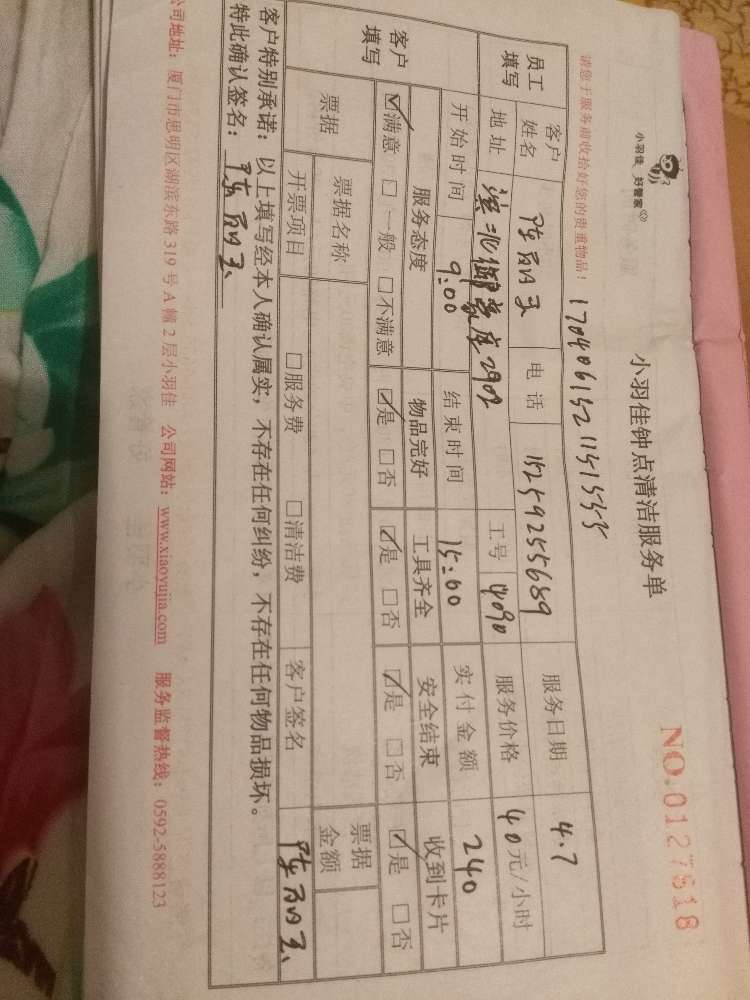 小羽佳 好管家
小羽佳钟点清洁服务单
NO.0127618
请您于服务前收拾好您的贵重物品！
1704061521151555
员工填写 客户姓名 陈丽玉 电话 15259255689 服务日期 4.7
地址 滨北御景座2902 工号 4090 服务价格 40元/小时
开始时间 9:00 结束时间 15:00 实付金额 240
客户填写 服务态度 物品完好 工具齐全 安全结束 收到卡片
☑满意 □一般 □不满意 ☑是 □否 ☑是 □否 ☑是 □否 ☑是 □否
票据 票据名称 票据金额
开票项目 □服务费 □清洁费 客户签名 陈丽玉
客户特别承诺：以上填写经本人确认属实，不存在任何纠纷，不存在任何物品损坏。
特此确认签名：陈丽玉
公司地址：厦门市思明区湖滨东路319号A幢2层小羽佳 公司网站：www.xiaoyujia.com 服务监督热线：0592-5888123